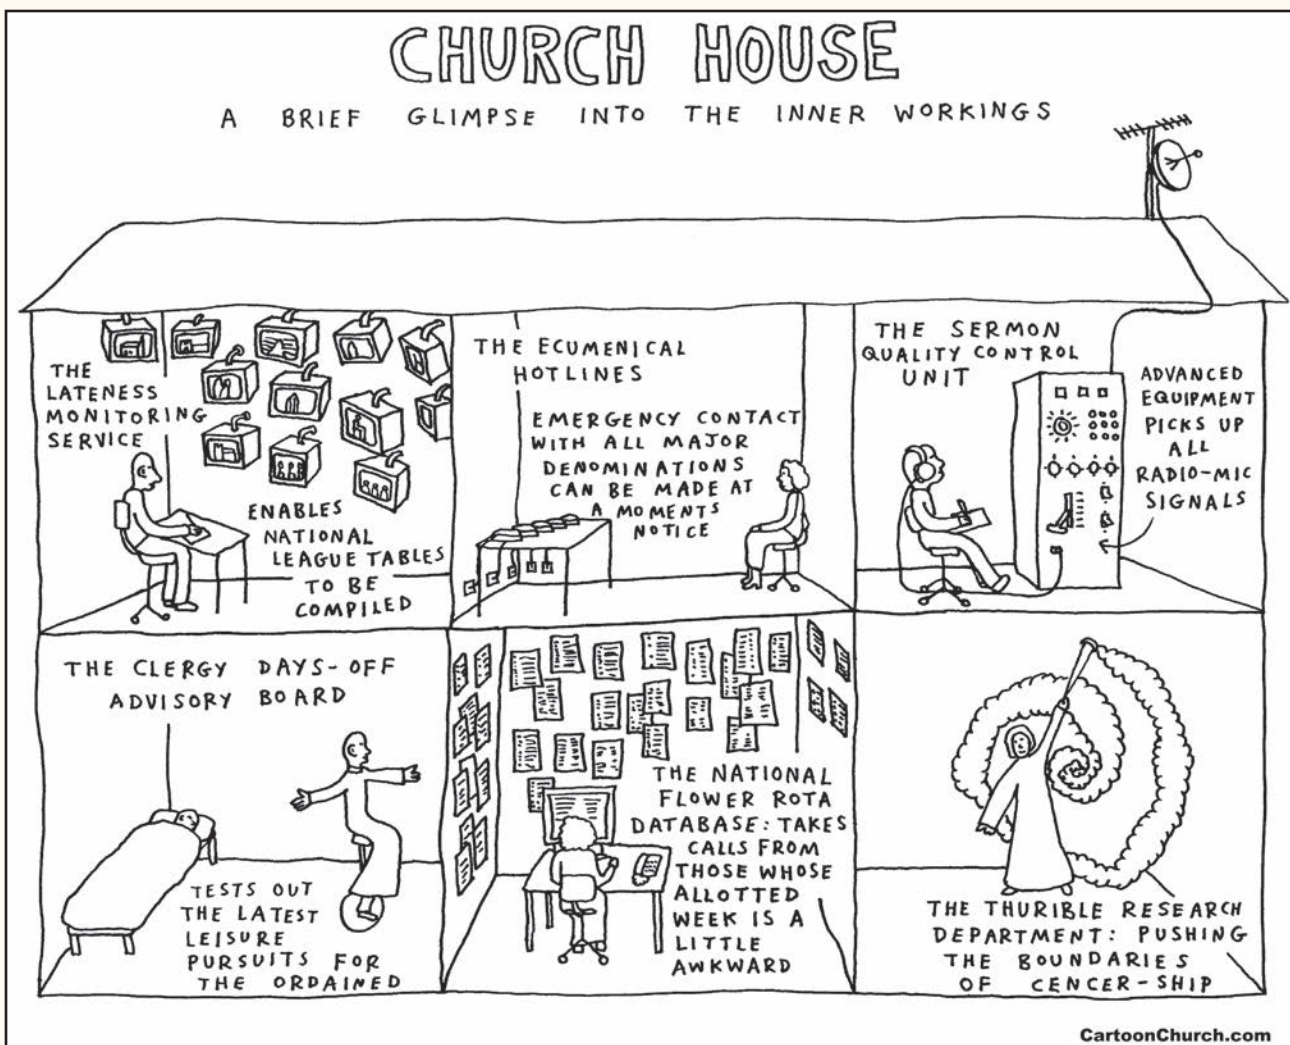 CHURCH HOUSE
A BRIEF GLIMPSE INTO THE INNER WORKINGS
THE
LATENESS
MONITORING
SERVICE
ENABLES
NATIONAL
LEAGUE TABLES
TO BE
COMPILED
THE ECUMENICAL
HOTLINES
EMERGENCY CONTACT
WITH ALL MAJOR
DENOMINATIONS
CAN BE MADE AT
A MOMENTS
NOTICE
THE SERMON
QUALITY CONTROL
UNIT
ADVANCED
EQUIPMENT
PICKS UP
ALL
RADIO-MIC
SIGNALS
THE CLERGY DAYS-OFF
ADVISORY BOARD
TESTS OUT
THE LATEST
LEISURE
PURSUITS FOR
THE ORDAINED
THE NATIONAL
FLOWER ROTA
DATABASE: TAKES
CALLS FROM
THOSE WHOSE
ALLOTTED
WEEK IS A
LITTLE
AWKWARD
THE THURIBLE RESEARCH
DEPARTMENT: PUSHING
THE BOUNDARIES
OF CENCER-SHIP
CartoonChurch.com